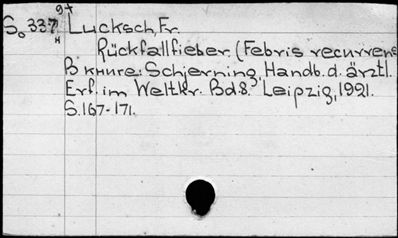 97
S₀ 337 Lucksch, Fr.
н
Rückfallfieber. (Febris recurrens
В книге: Schjerning, Handb. d. ärztl.
Erf. im Weltkr. Bd 8. Leipzig, 1921.
S. 167-171.